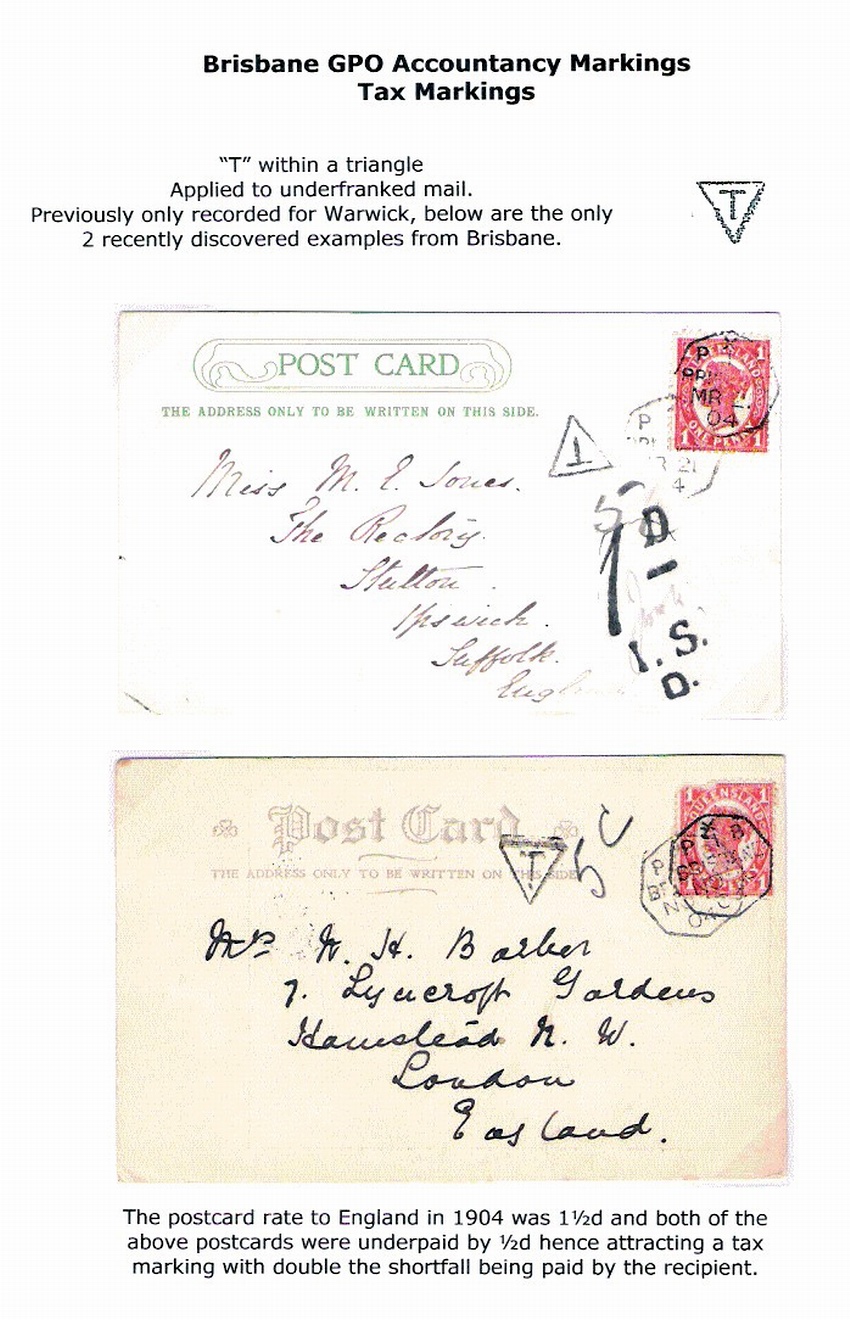 Brisbane GPO Accountancy Markings
Tax Markings
“T” within a triangle
Applied to underfranked mail.
Previously only recorded for Warwick, below are the only
2 recently discovered examples from Brisbane.
T
POST CARD
THE ADDRESS ONLY TO BE WRITTEN ON THIS SIDE.
1 1
ONE PENNY
MR 21
04
T
Miss M. E. Jones.
The Rectory.
Stutton.
Ipswich.
Suffolk.
England
5
1 D
I.S.
D.
Post Card
THE ADDRESS ONLY TO BE WRITTEN ON THIS SIDE
T
5 C
1 QUEENSLAND 1
04
Mrs W. H. Barber
7. Lyncroft Gardens
Hamstead N. W.
London
England.
The postcard rate to England in 1904 was 1½d and both of the
above postcards were underpaid by ½d hence attracting a tax
marking with double the shortfall being paid by the recipient.